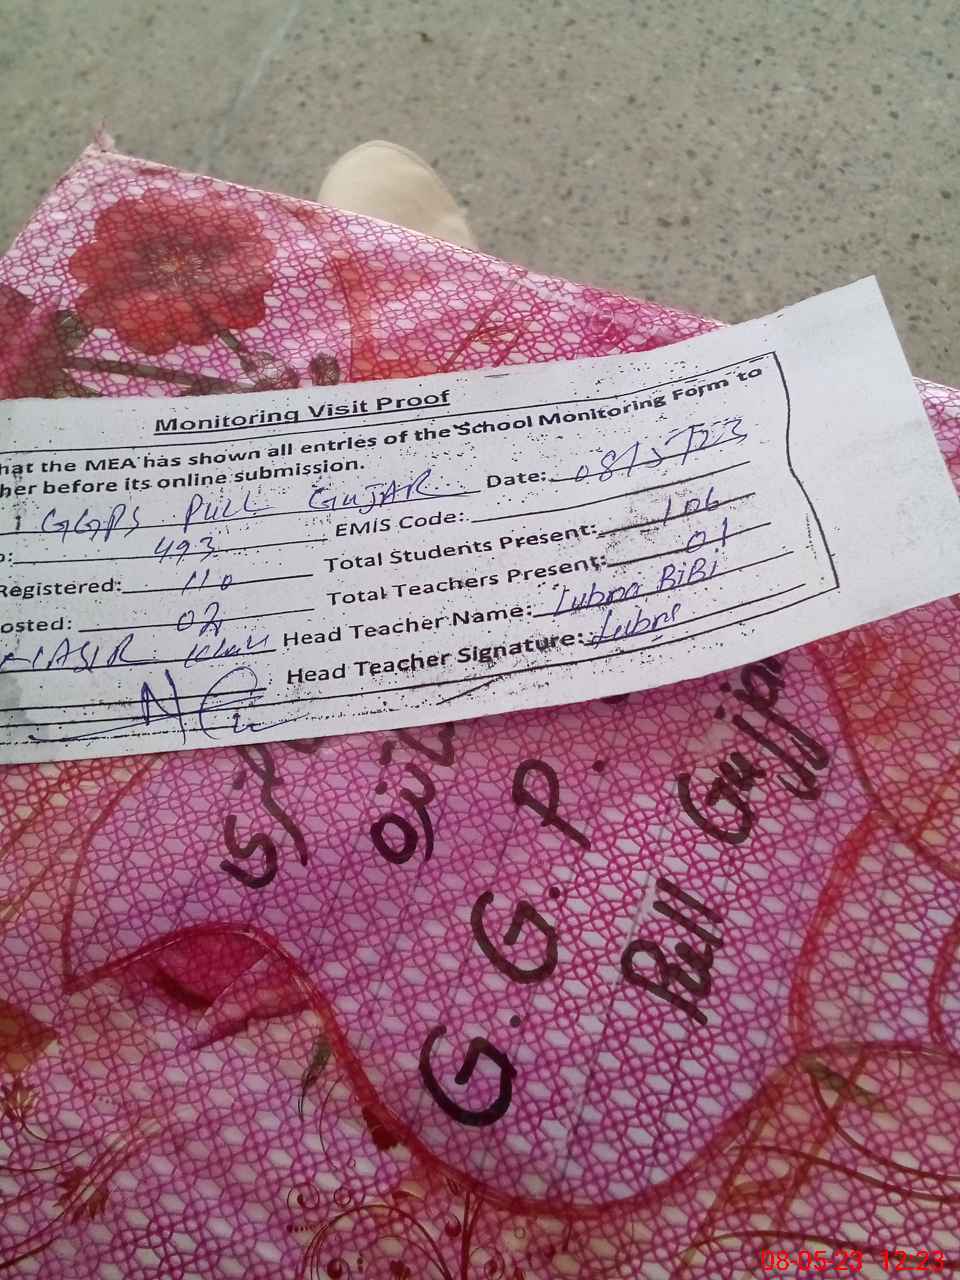 Monitoring Visit Proof
hat the MEA has shown all entries of the School Monitoring Form to
her before its online submission.
GGPS PULL GUJAR Date: 08/5/23
o: 493 EMIS Code:
Registered: 110 Total Students Present: 106
osted: 02 Total Teachers Present: 01
NASIR Khan Head Teacher Name: Lubna BiBi
Head Teacher Signature: Lubna
G. G. P.
Pull Gujjar
08-05-23 12:23